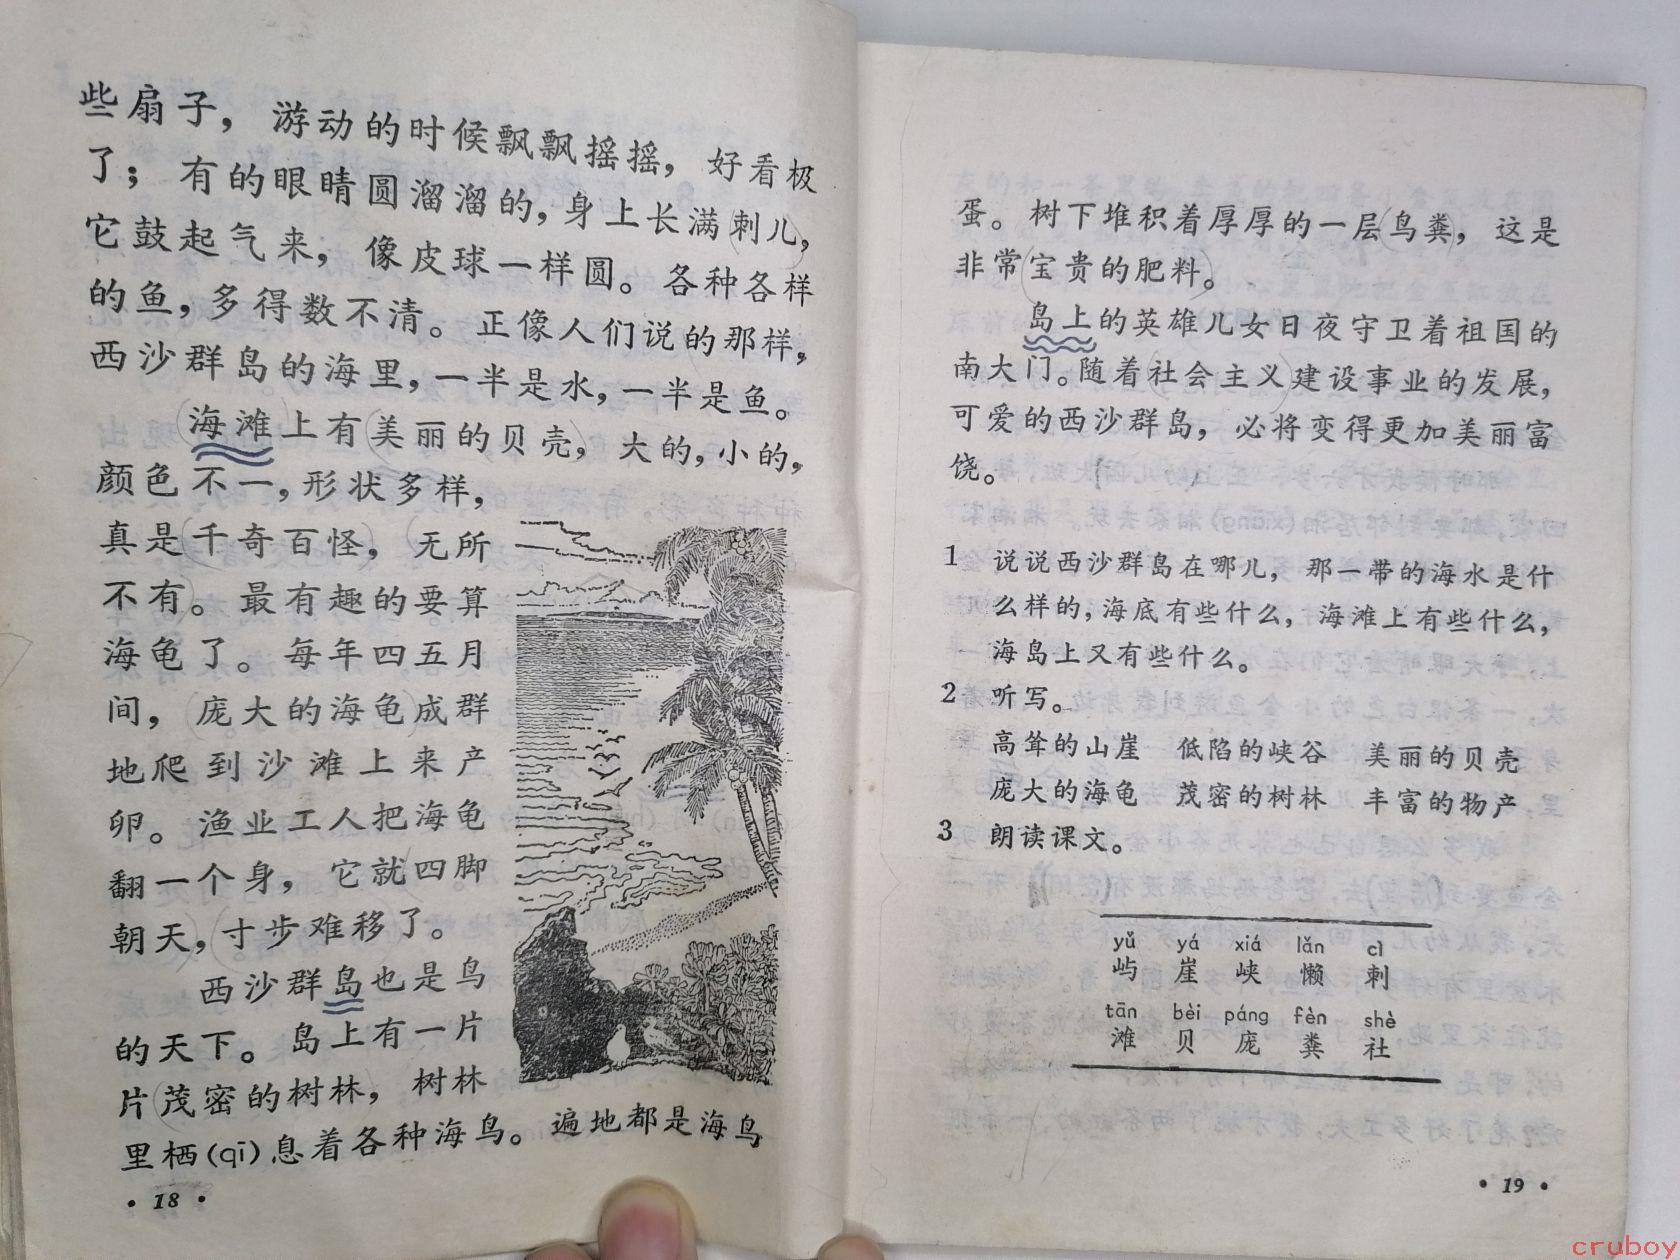 些扇子，游动的时候飘飘摇摇，好看极
了；有的眼睛圆溜溜的，身上长满刺儿，
它鼓起气来，像皮球一样圆。各种各样
的鱼，多得数不清。正像人们说的那样，
西沙群岛的海里，一半是水，一半是鱼。
海滩上有美丽的贝壳，大的，小的，
颜色不一，形状多样，
真是千奇百怪，无所
不有。最有趣的要算
海龟了。每年四五月
间，庞大的海龟成群
地爬到沙滩上来产
卵。渔业工人把海龟
翻一个身，它就四脚
朝天，寸步难移了。
西沙群岛也是鸟
的天下。岛上有一片
片茂密的树林，树林
里栖(qī)息着各种海鸟。遍地都是海鸟
·18·
蛋。树下堆积着厚厚的一层鸟粪，这是
非常宝贵的肥料。
岛上的英雄儿女日夜守卫着祖国的
南大门。随着社会主义建设事业的发展，
可爱的西沙群岛，必将变得更加美丽富
饶。
1 说说西沙群岛在哪儿，那一带的海水是什
么样的，海底有些什么，海滩上有些什么，
海岛上又有些什么。
2 听写。
高耸的山崖 低陷的峡谷 美丽的贝壳
庞大的海龟 茂密的树林 丰富的物产
3 朗读课文。
yǔ yá xiá lǎn cì
屿 崖 峡 懒 刺
tān bèi páng fèn shè
滩 贝 庞 粪 社
·19·
cruboy